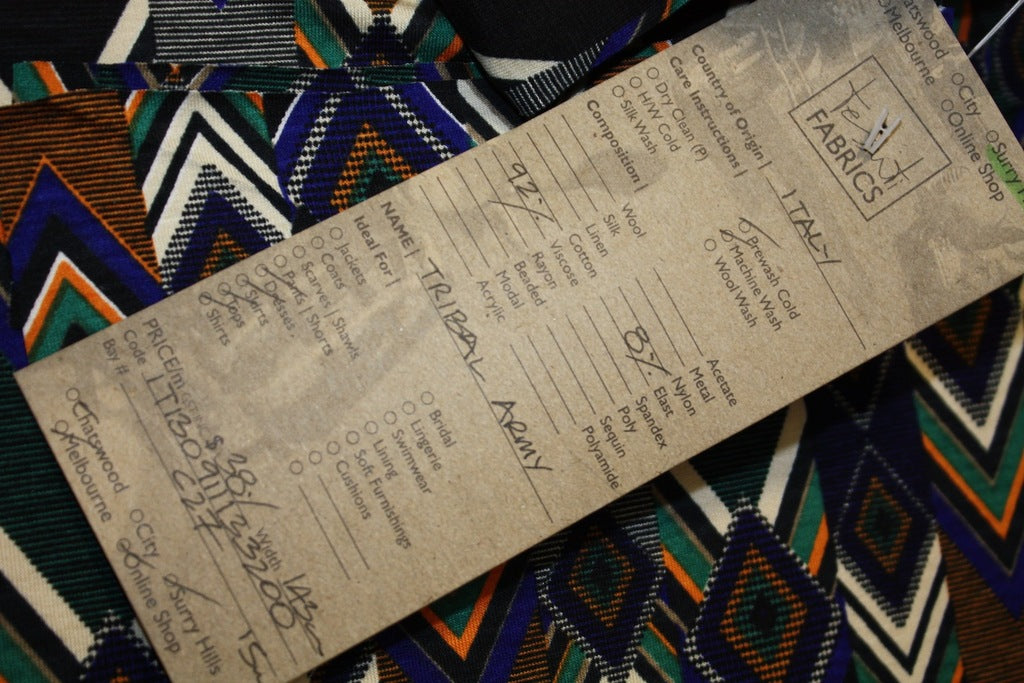 Chatswood
Melbourne
City
Online Shop
Surry
The
FABRICS
Country of Origin | ITALY
Care Instructions |
Dry Clean (P)
H/W Cold
Silk Wash
Prewash Cold
Machine Wash
Wool Wash
Composition |
Wool
Silk
Linen
92% Cotton
Viscose
Rayon
Beaded
Modal
Acrylic
Acetate
Metal
Nylon
8% Elast
Spandex
Poly
Sequin
Polyamide
NAME | TRIBAL ARMY
Ideal For |
Jackets
Coats
Scarves | Shawls
Pants | Shorts
Dresses
Skirts
Tops
Shirts
Bridal
Lingerie
Swimwear
Lining
Soft Furnishings
Cushions
PRICE/m $ 38.- Width
Code
Bay # C27
Chatswood
Melbourne
City
Online Shop
Surry Hills